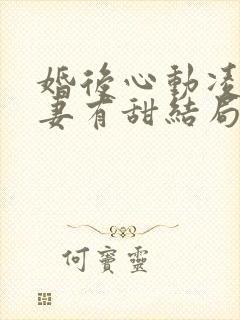 婚後心動凌
妻有甜結局
何寶靈